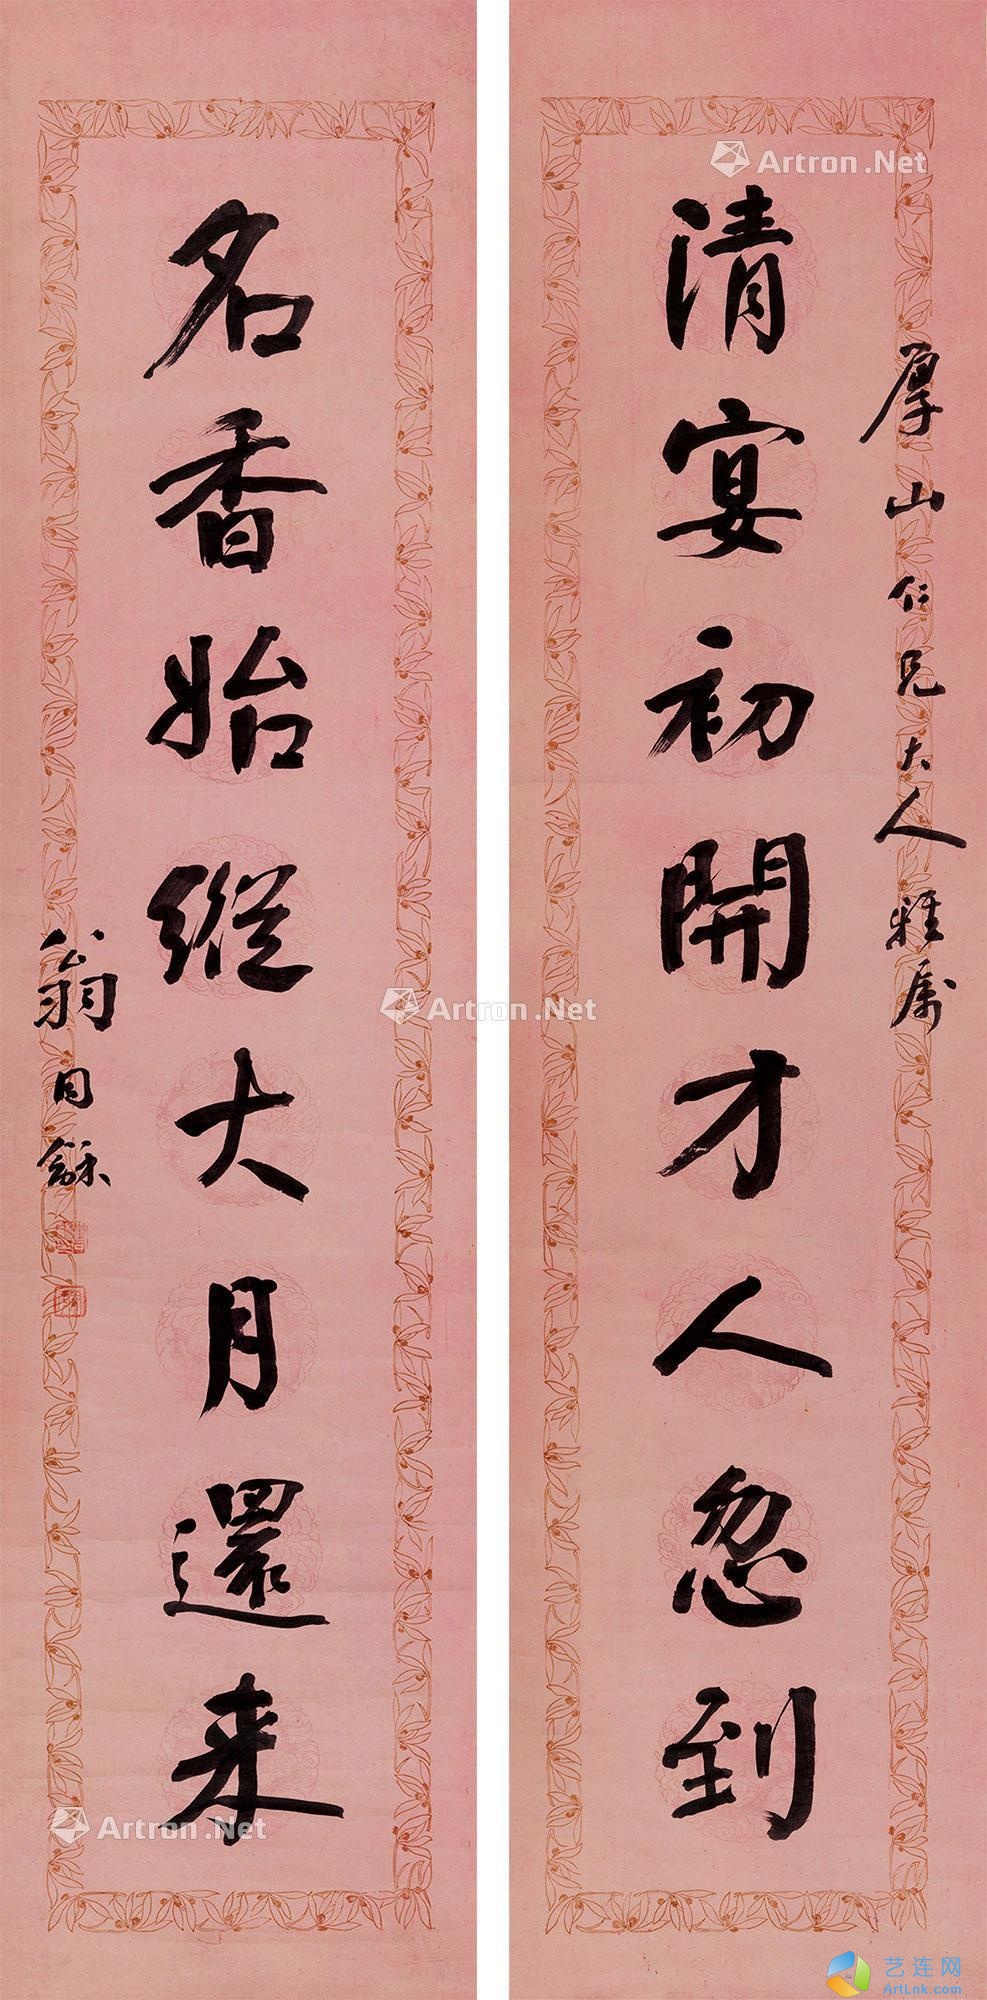 厚山仁兄大人雅属
清宴初開才人忽到
名香始縱大月還来
翁同龢
Artron.Net
Artron.Net
Artron.Net
艺连网
ArtLnk.com